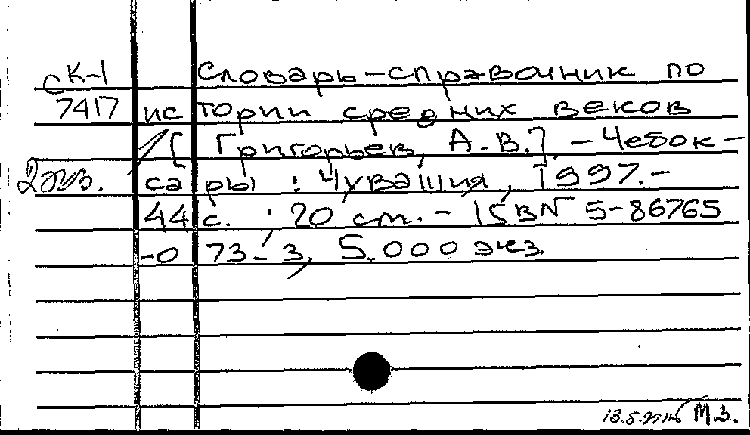 СК-1 Словарь-справочник по
7417 истории средних веков
/[Григорьев, А.В.]. - Чебок-
2экз. сары : Чувашия, 1997. -
44 с. ; 20 см. - ISBN 5-86765
-073-3, 5.000 экз.
М.З.